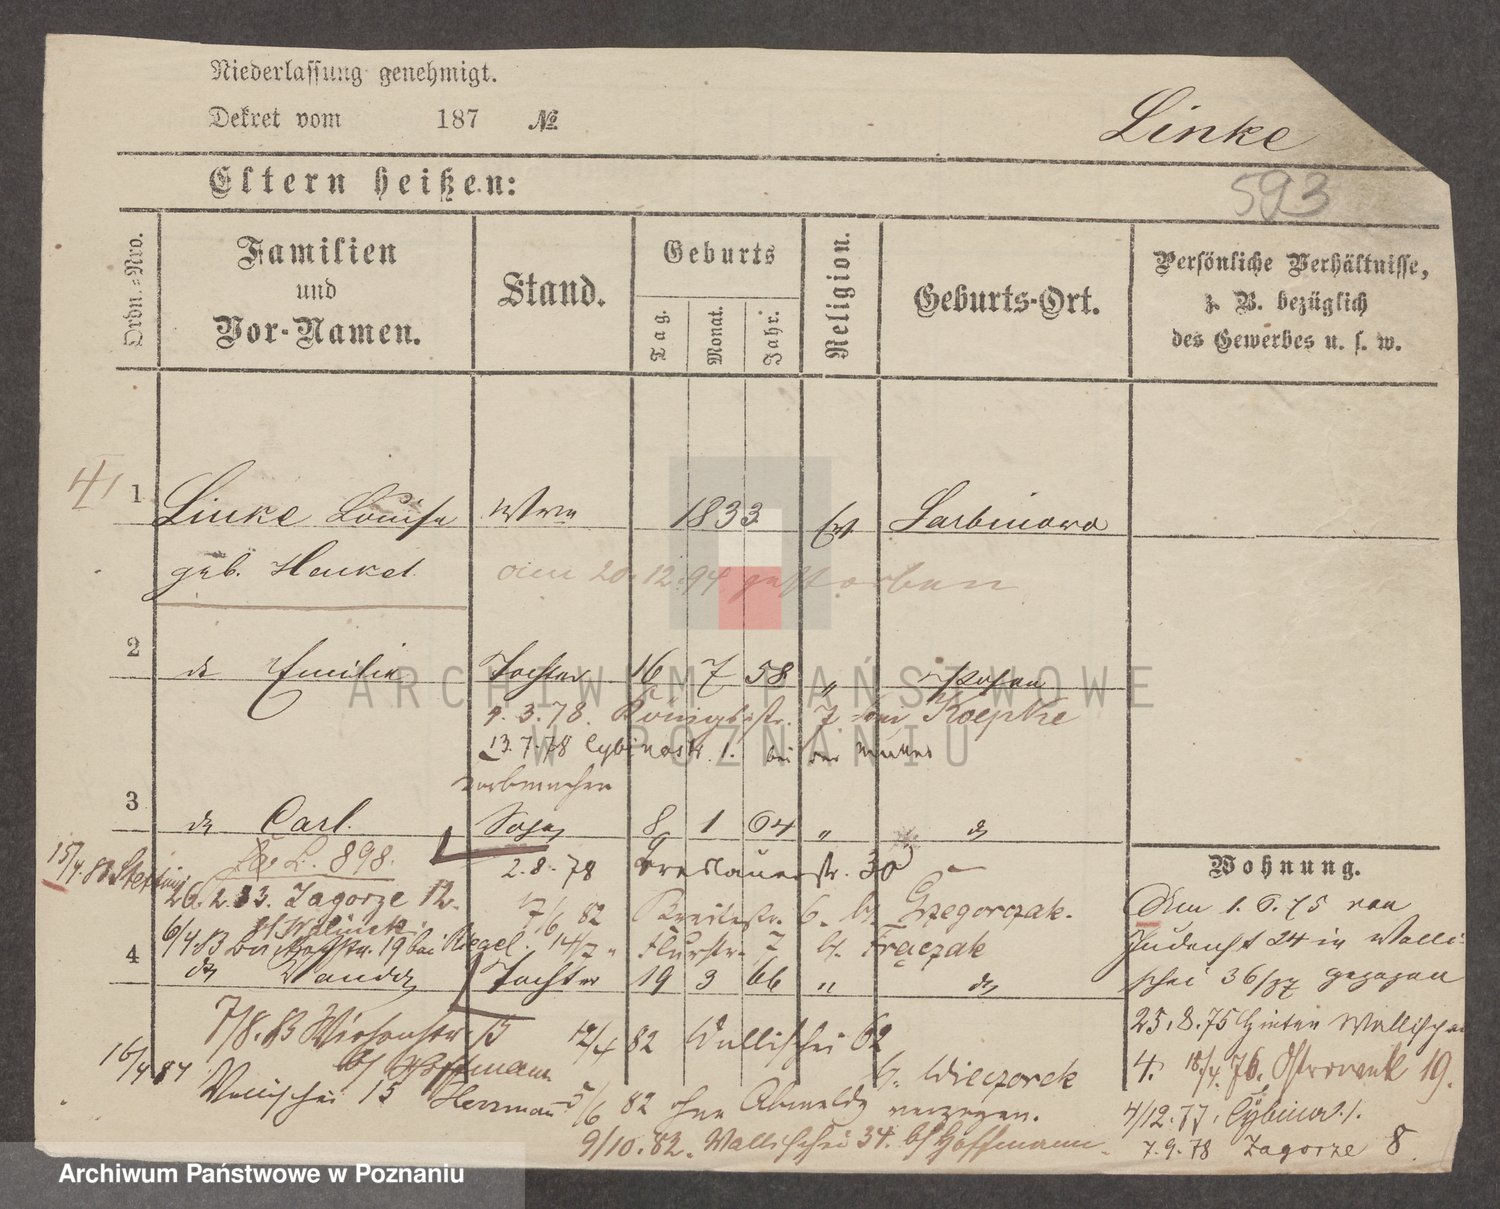 Niederlassung genehmigt.
Dekret vom 187 №
Linke
Eltern heißen:
593
Ordn.-Nro.
Familien
und
Vor-Namen.
Stand.
Geburts
Tag.
Monat.
Jahr.
Religion.
Geburts-Ort.
Persönliche Verhältnisse,
z. B. bezüglich
des Gewerbes u. s. w.
1 Linke Louise Wwe 1833 Ev Sarbinowo
geb. Henkel am 20.12.94 gestorben
2 do Emilie Tochter 16 7 58 " Posen
9.3.78. Königsstr. 7 Koepke
13.7.78 Cybinastr. 1. bei der Mutter
3 do Carl. Sohn 8 1 64 " do
L. 898.
2.8.78 Breslauerstr. 30
15/4. 80 Stettin
26.2.83. Zagorze 12.
7/6 82 Breitestr. 6. bei Grzegorczak.
6/4 83 19 bei Riegel. 14/7 " Flurstr. 7 b. Frączak
4 do Wanda Tochter 19 3 66 " do
7/8.83 Wiesenstr. 13
bei Hoffmann
12/4 82 Wallischei 62
b. Wieczorek
16/4 84
Wallischei 15 Herrmann
5/6 82 ohne Abmeldg verzogen.
9/10.82. Wallischei 34. bei Hoffmann.
Wohnung.
Den 1.6.75 von
Judenst 24 in Walli-
schei 36/37 gezogen
25.8.75 Hinter Wallischei
4. 18/4. 76. Ostrowek 19.
4/12.77. Cybinast. 1.
7.9.78 Zagorze 8.
ARCHIWUM PAŃSTWOWE
W POZNANIU
Archiwum Państwowe w Poznaniu